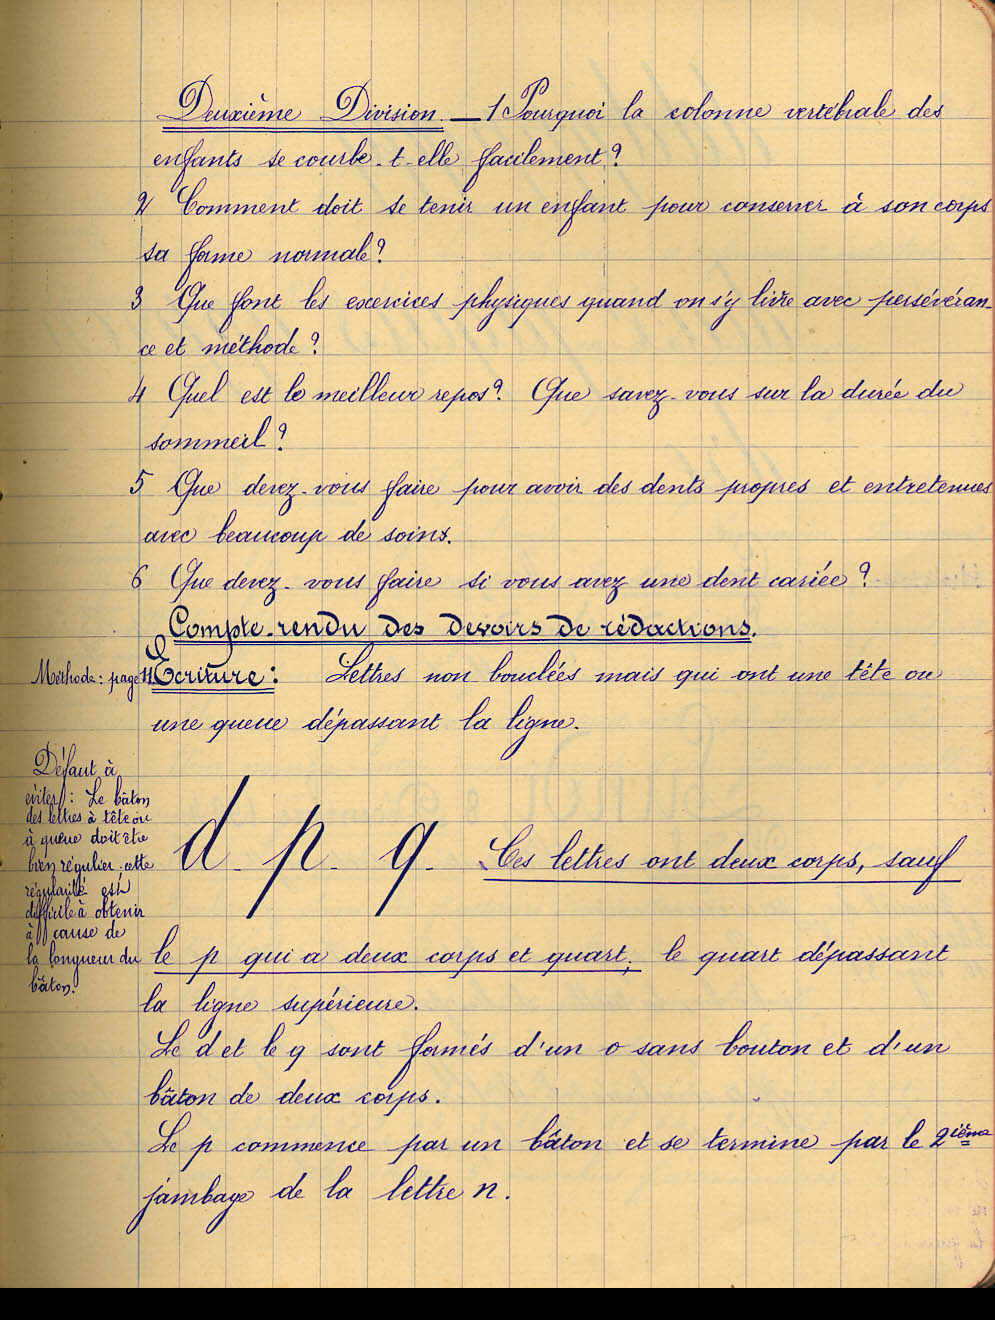 Deuxième Division. — 1 Pourquoi la colonne vertébrale des
enfants se courbe-t-elle facilement ?
2 Comment doit se tenir un enfant pour conserver à son corps
sa forme normale ?
3 Que font les exercices physiques quand on s'y livre avec persévéran-
ce et méthode ?
4 Quel est le meilleur repos ? Que savez-vous sur la durée du
sommeil ?
5 Que devez-vous faire pour avoir des dents propres et entretenues
avec beaucoup de soins.
6 Que devez-vous faire si vous avez une dent cariée ?
Compte-rendu des devoirs de rédactions.
Méthode : page 11
Ecriture : Lettres non bouclées mais qui ont une tête ou
une queue dépassant la ligne.
Défaut à
éviter : Le bâton
des lettres à tête ou
à queue doit être
bien régulier, cette
régularité est
difficile à obtenir
à cause de
la longueur du
bâton.
d - p - q - Ces lettres ont deux corps, sauf
le p qui a deux corps et quart, le quart dépassant
la ligne supérieure.
Le d et le q sont formés d'un o sans bouton et d'un
bâton de deux corps.
Le p commence par un bâton et se termine par le 2ième
jambage de la lettre n.